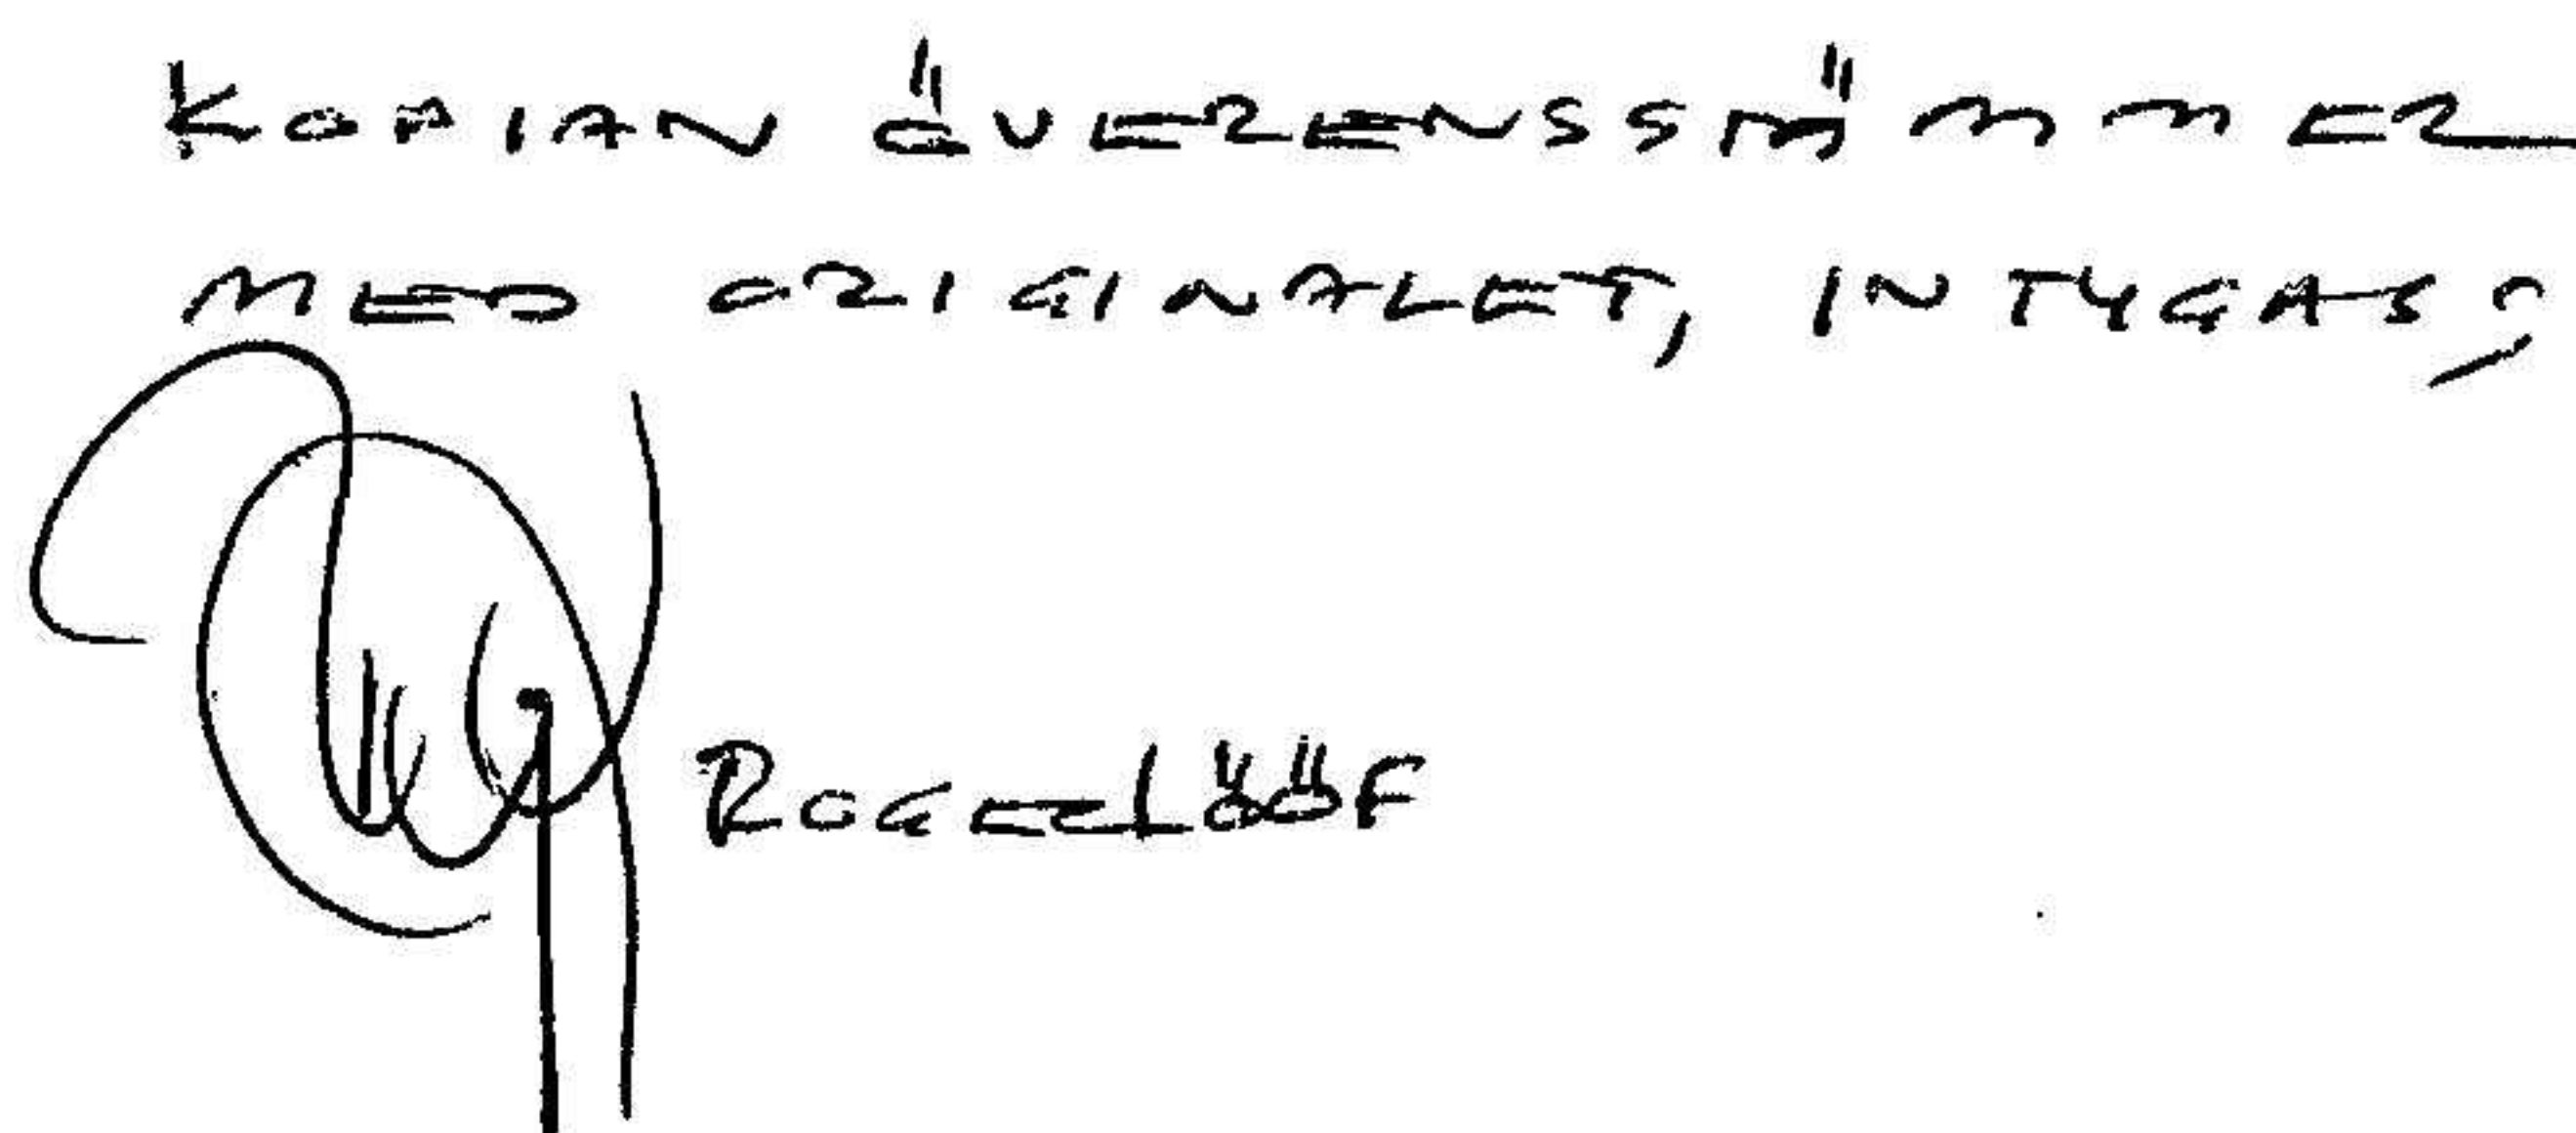 KOPIAN ÖVERENSSTÄMMER
MED ORIGINALET, INTYGAS;
ROGER LÖÖF